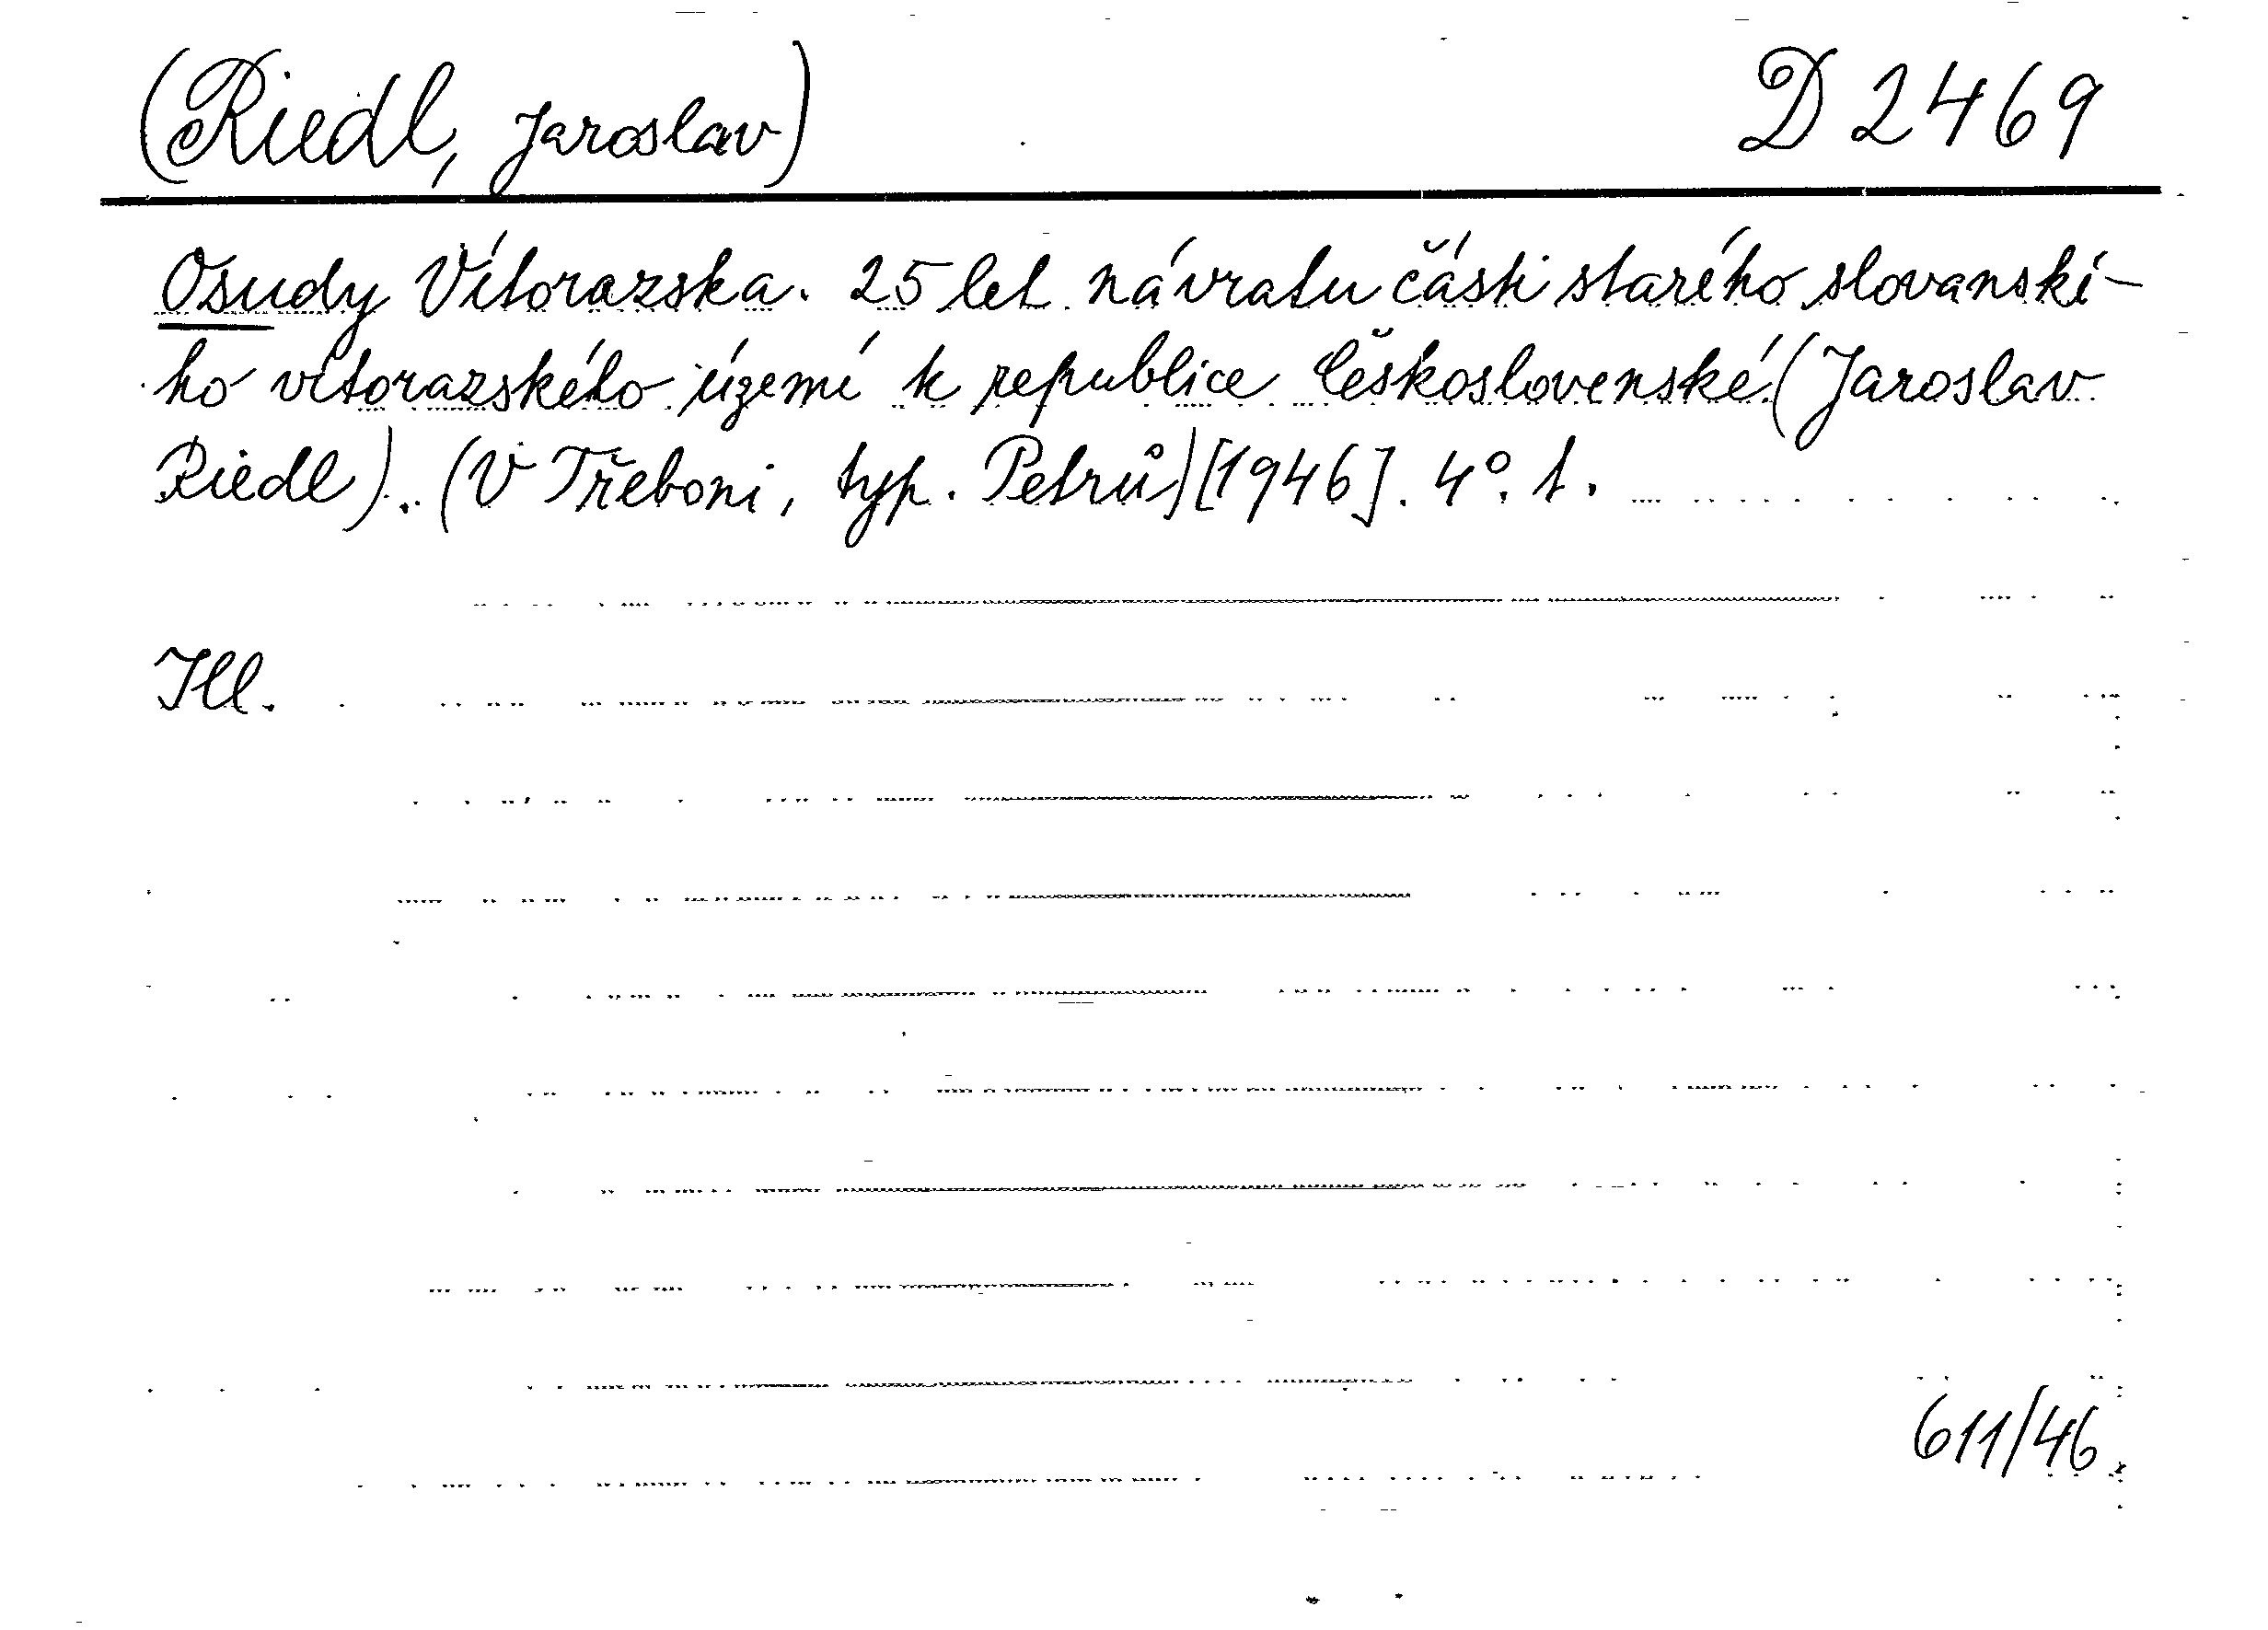 (Riedl, Jaroslav) D 2469
Osudy Vítorazska. 25 let návratu části starého slovanské-
ho vitorazského území k republice Československé. (Jaroslav
Riedl). (V Třeboni, typ. Petrů) [1946]. 4°. 1.
Ill.
611/46.